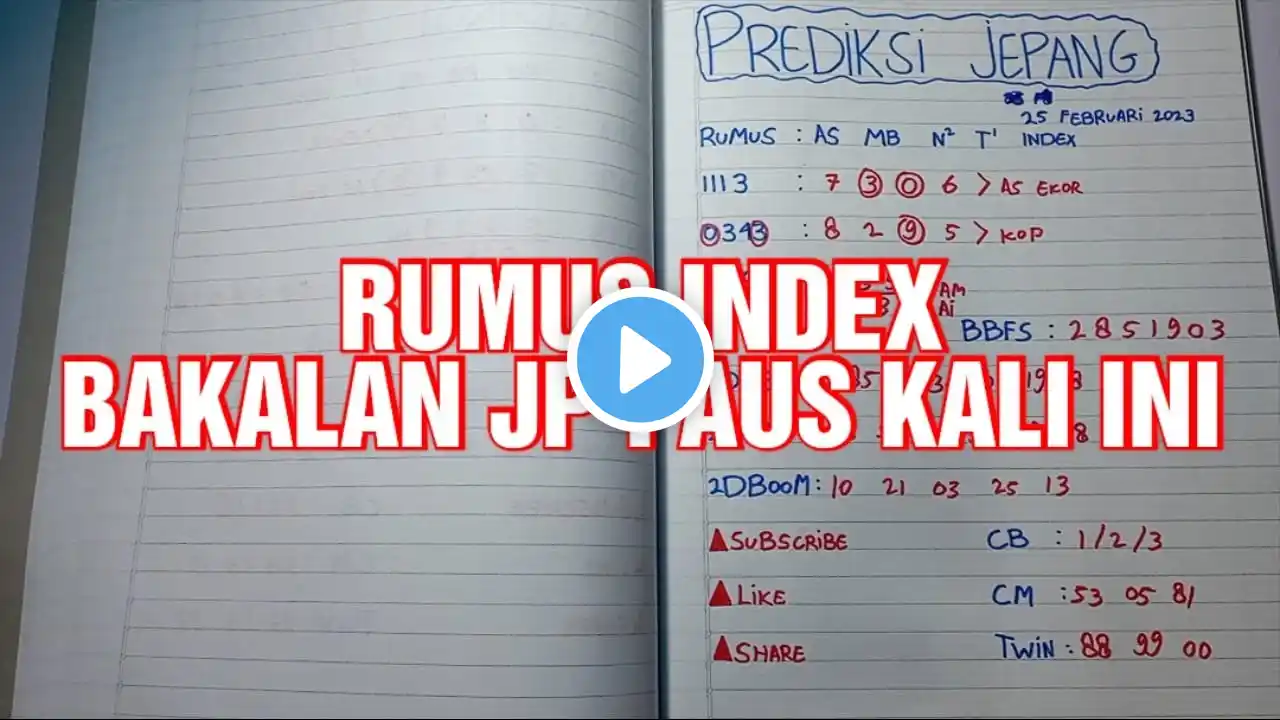 PREDiKSi JEPANG
25 FEBRUARi 2023
RUMUS : AS MB N² T¹ INDEX
1113 : 7 3 0 6 > AS EKOR
0343 : 8 2 9 5 > KOP
RUMUS INDEX
AM
Ai
BBFS : 2851903
BAKALAN JP PAUS KALI INI
2DBOOM : 10 21 03 25 13
SUBSCRiBE CB : 1/2/3
LiKE CM : 53 05 81
SHARE TWiN : 88 99 00